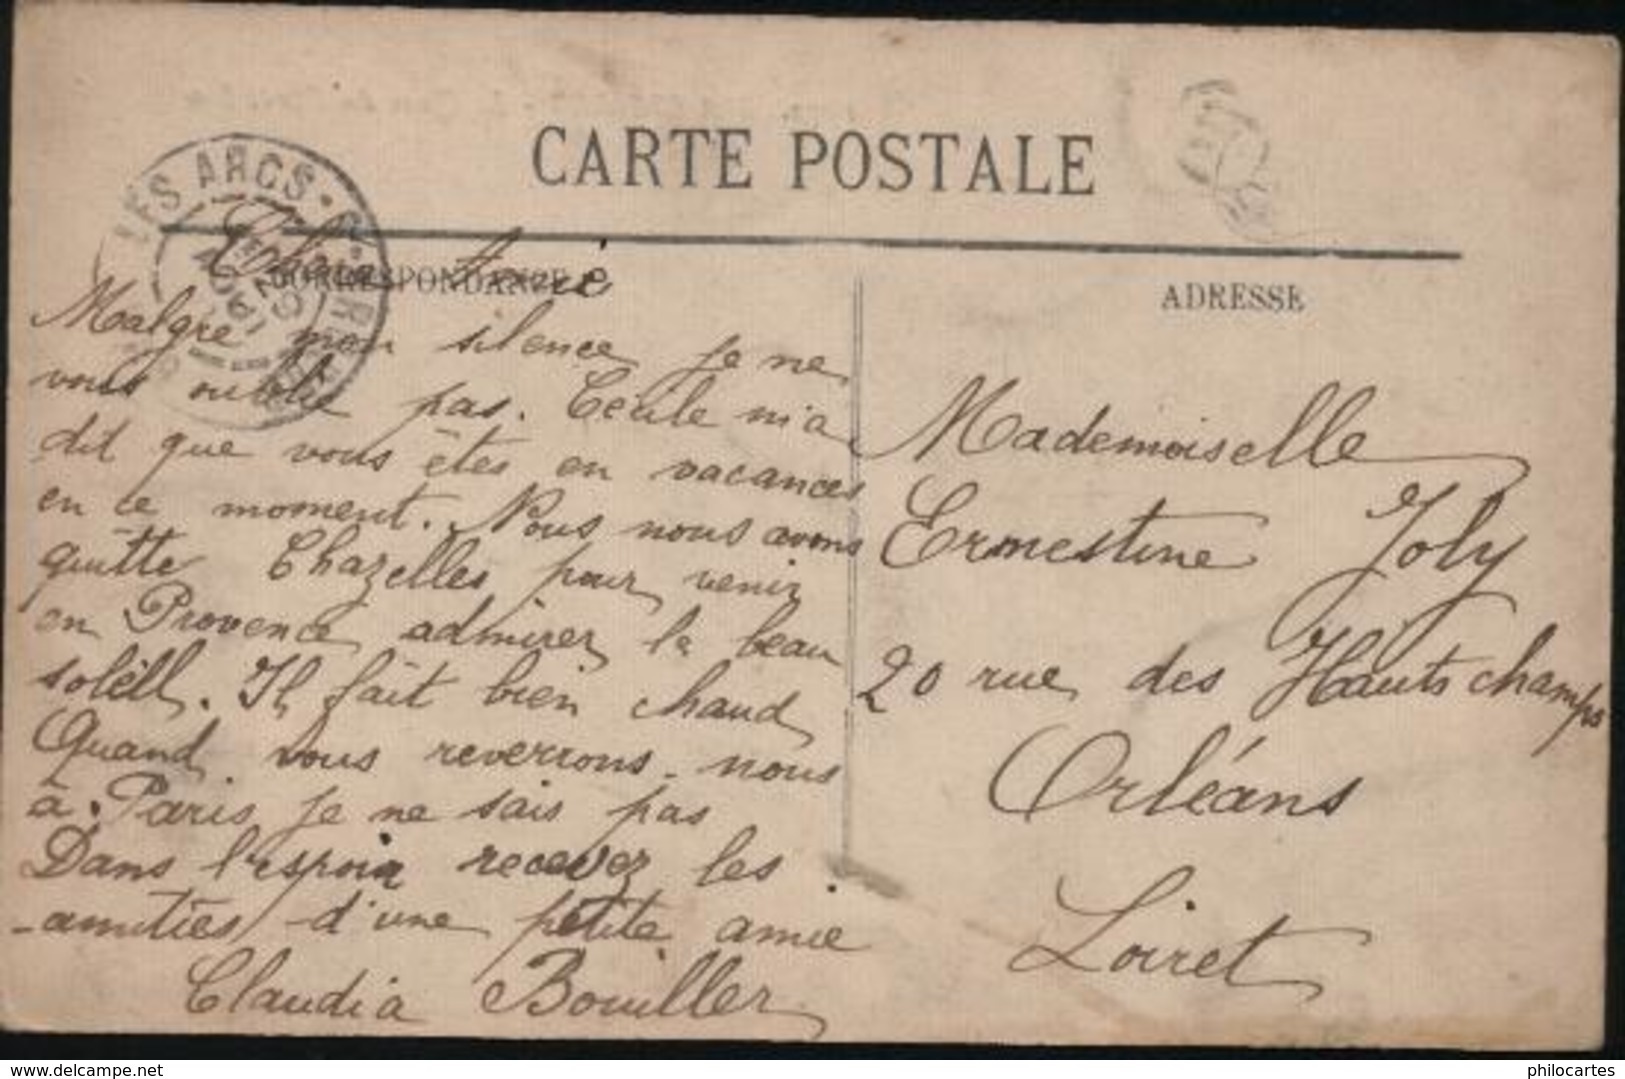 CARTE POSTALE
LES ARCS
CORRESPONDANCE
ADRESSE
Chère Amie
Malgré mon silence je ne
vous oublie pas. Cecile m'a
dit que vous êtes en vacances
en ce moment. Nous nous avons
quitte Chazelles pour venir
en Provence admirer le beau
soleill. Il fait bien chaud
Quand vous reverrons-nous
à Paris je ne sais pas
Dans l'espoir recevez les
amitiés d'une petite amie
Claudia Bouiller
Mademoiselle
Ernestine Joly
20 rue des Hauts champs
Orléans
Loiret
www.delcampe.net
philocartes